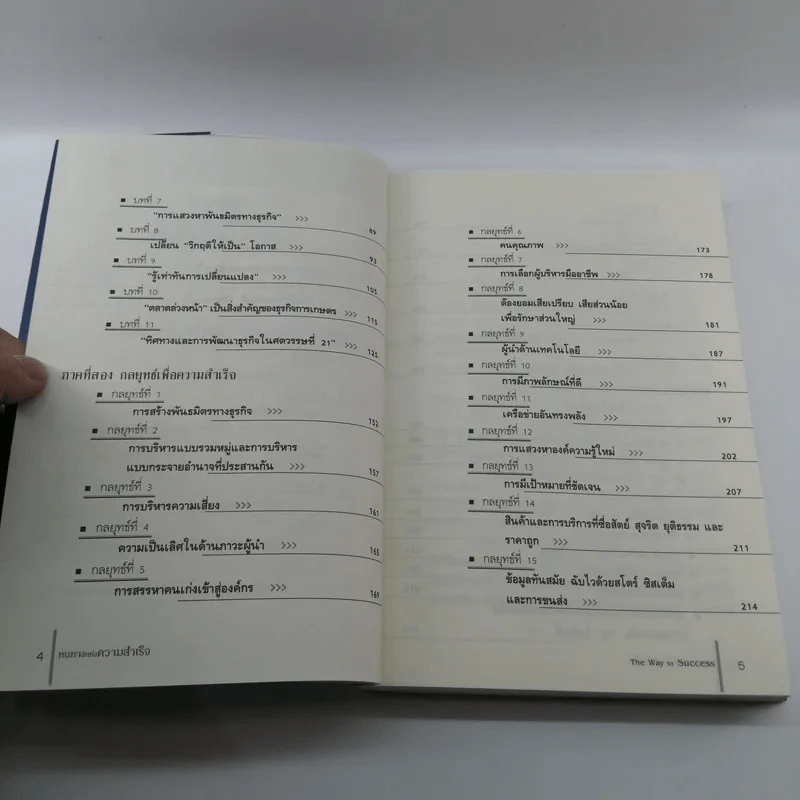 ■ บทที่ 7
"การแสวงหาพันธมิตรทางธุรกิจ" >>> 89
■ บทที่ 8
เปลี่ยน "วิกฤติให้เป็น" โอกาส >>> 93
■ บทที่ 9
"รู้เท่าทันการเปลี่ยนแปลง" >>> 105
■ บทที่ 10
"ตลาดล่วงหน้า" เป็นสิ่งสำคัญของธุรกิจการเกษตร >>> 115
■ บทที่ 11
"ทิศทางและการพัฒนาธุรกิจในศตวรรษที่ 21" >>> 125
ภาคที่สอง กลยุทธ์เพื่อความสำเร็จ
■ กลยุทธ์ที่ 1
การสร้างพันธมิตรทางธุรกิจ >>> 152
■ กลยุทธ์ที่ 2
การบริหารแบบรวมหมู่และการบริหาร
แบบกระจายอำนาจที่ประสานกัน >>> 157
■ กลยุทธ์ที่ 3
การบริหารความเสี่ยง >>> 161
■ กลยุทธ์ที่ 4
ความเป็นเลิศในด้านภาวะผู้นำ >>> 165
■ กลยุทธ์ที่ 5
การสรรหาคนเก่งเข้าสู่องค์กร >>> 169
4 หนทางแห่งความสำเร็จ
■ กลยุทธ์ที่ 6
คนคุณภาพ >>> 173
■ กลยุทธ์ที่ 7
การเลือกผู้บริหารมืออาชีพ >>> 178
■ กลยุทธ์ที่ 8
ต้องยอมเสียเปรียบ เสียส่วนน้อย
เพื่อรักษาส่วนใหญ่ >>> 181
■ กลยุทธ์ที่ 9
ผู้นำด้านเทคโนโลยี >>> 187
■ กลยุทธ์ที่ 10
การมีภาพลักษณ์ที่ดี >>> 191
■ กลยุทธ์ที่ 11
เครือข่ายอันทรงพลัง >>> 197
■ กลยุทธ์ที่ 12
การแสวงหาองค์ความรู้ใหม่ >>> 202
■ กลยุทธ์ที่ 13
การมีเป้าหมายที่ชัดเจน >>> 207
■ กลยุทธ์ที่ 14
สินค้าและการบริการที่ซื่อสัตย์ สุจริต ยุติธรรม และ
ราคาถูก >>> 211
■ กลยุทธ์ที่ 15
ข้อมูลทันสมัย ฉับไวด้วยสโตร์ ซิสเต็ม
และการขนส่ง >>> 214
The Way to Success 5